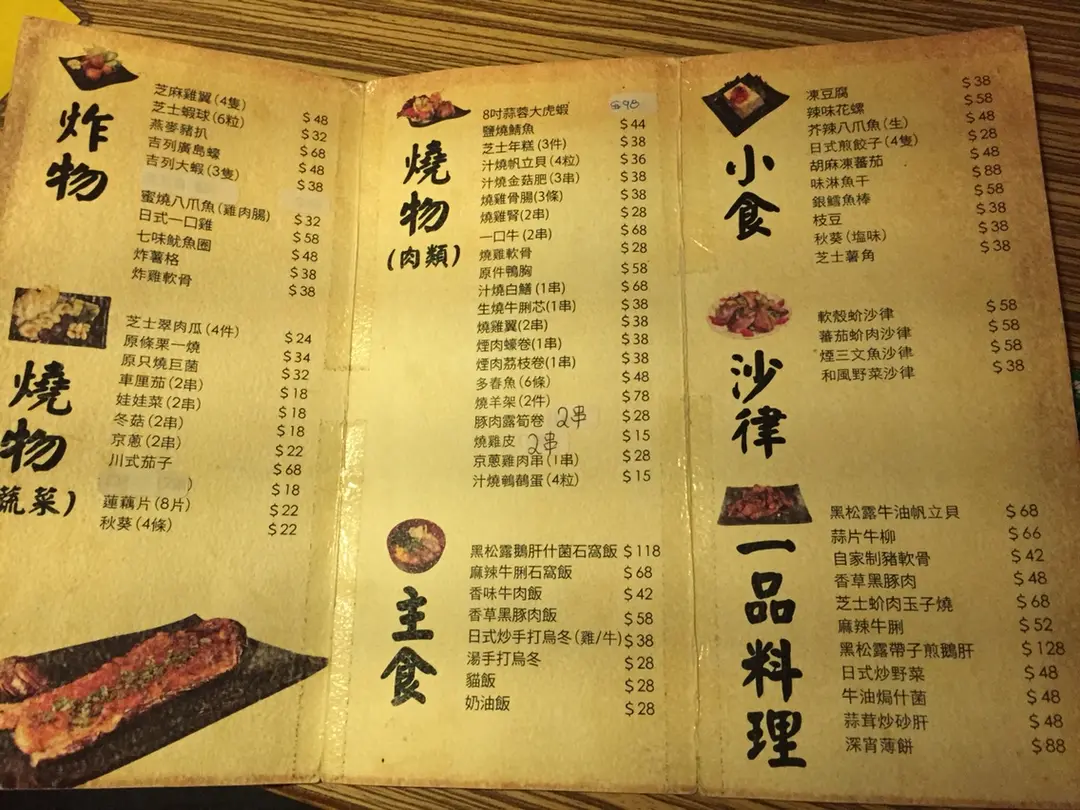 炸物
芝麻雞翼(4隻) $48
芝士蝦球(6粒) $32
燕麥豬扒 $68
吉列廣島蠔 $48
吉列大蝦(3隻) $38
蜜燒八爪魚(雞肉腸) $32
日式一口雞 $58
七味魷魚圈 $48
炸薯格 $38
炸雞軟骨 $38
燒物
(蔬菜)
芝士翠肉瓜(4件) $24
原條栗一燒 $34
原只燒巨菌 $32
車厘茄(2串) $18
娃娃菜(2串) $18
冬菇(2串) $18
京蔥(2串) $22
川式茄子 $68
) $18
蓮藕片(8片) $22
秋葵(4條) $22
燒物
(肉類)
8吋蒜蓉大虎蝦 $98
鹽燒鯖魚 $44
芝士年糕(3件) $38
汁燒帆立貝(4粒) $36
汁燒金菇肥(3串) $38
燒雞骨腸(3條) $38
燒雞腎(2串) $28
一口牛(2串) $68
燒雞軟骨 $28
原件鴨胸 $58
汁燒白鱔(1串) $68
生燒牛脷芯(1串) $38
燒雞翼(2串) $38
煙肉蠔卷(1串) $38
煙肉荔枝卷(1串) $38
多春魚(6條) $48
燒羊架(2件) $78
豚肉露筍卷 2串 $28
燒雞皮 2串 $15
京蔥雞肉串(1串) $28
汁燒鵪鶉蛋(4粒) $15
主食
黑松露鵝肝什菌石窩飯 $118
麻辣牛脷石窩飯 $68
香味牛肉飯 $42
香草黑豚肉飯 $58
日式炒手打烏冬(雞/牛) $38
湯手打烏冬 $28
貓飯 $28
奶油飯 $28
小食
凍豆腐 $38
辣味花螺 $58
芥辣八爪魚(生) $48
日式煎餃子(4隻) $28
胡麻凍蕃茄 $48
味淋魚干 $88
銀鱈魚棒 $58
枝豆 $38
秋葵(塩味) $38
芝士薯角 $38
沙律
軟殼蚧沙律 $58
蕃茄蚧肉沙律 $58
煙三文魚沙律 $58
和風野菜沙律 $38
一品料理
黑松露牛油帆立貝 $68
蒜片牛柳 $66
自家制豬軟骨 $42
香草黑豚肉 $48
芝士蚧肉玉子燒 $68
麻辣牛脷 $52
黑松露帶子煎鵝肝 $128
日式炒野菜 $48
牛油焗什菌 $48
蒜茸炒砂肝 $48
深宵薄餅 $88